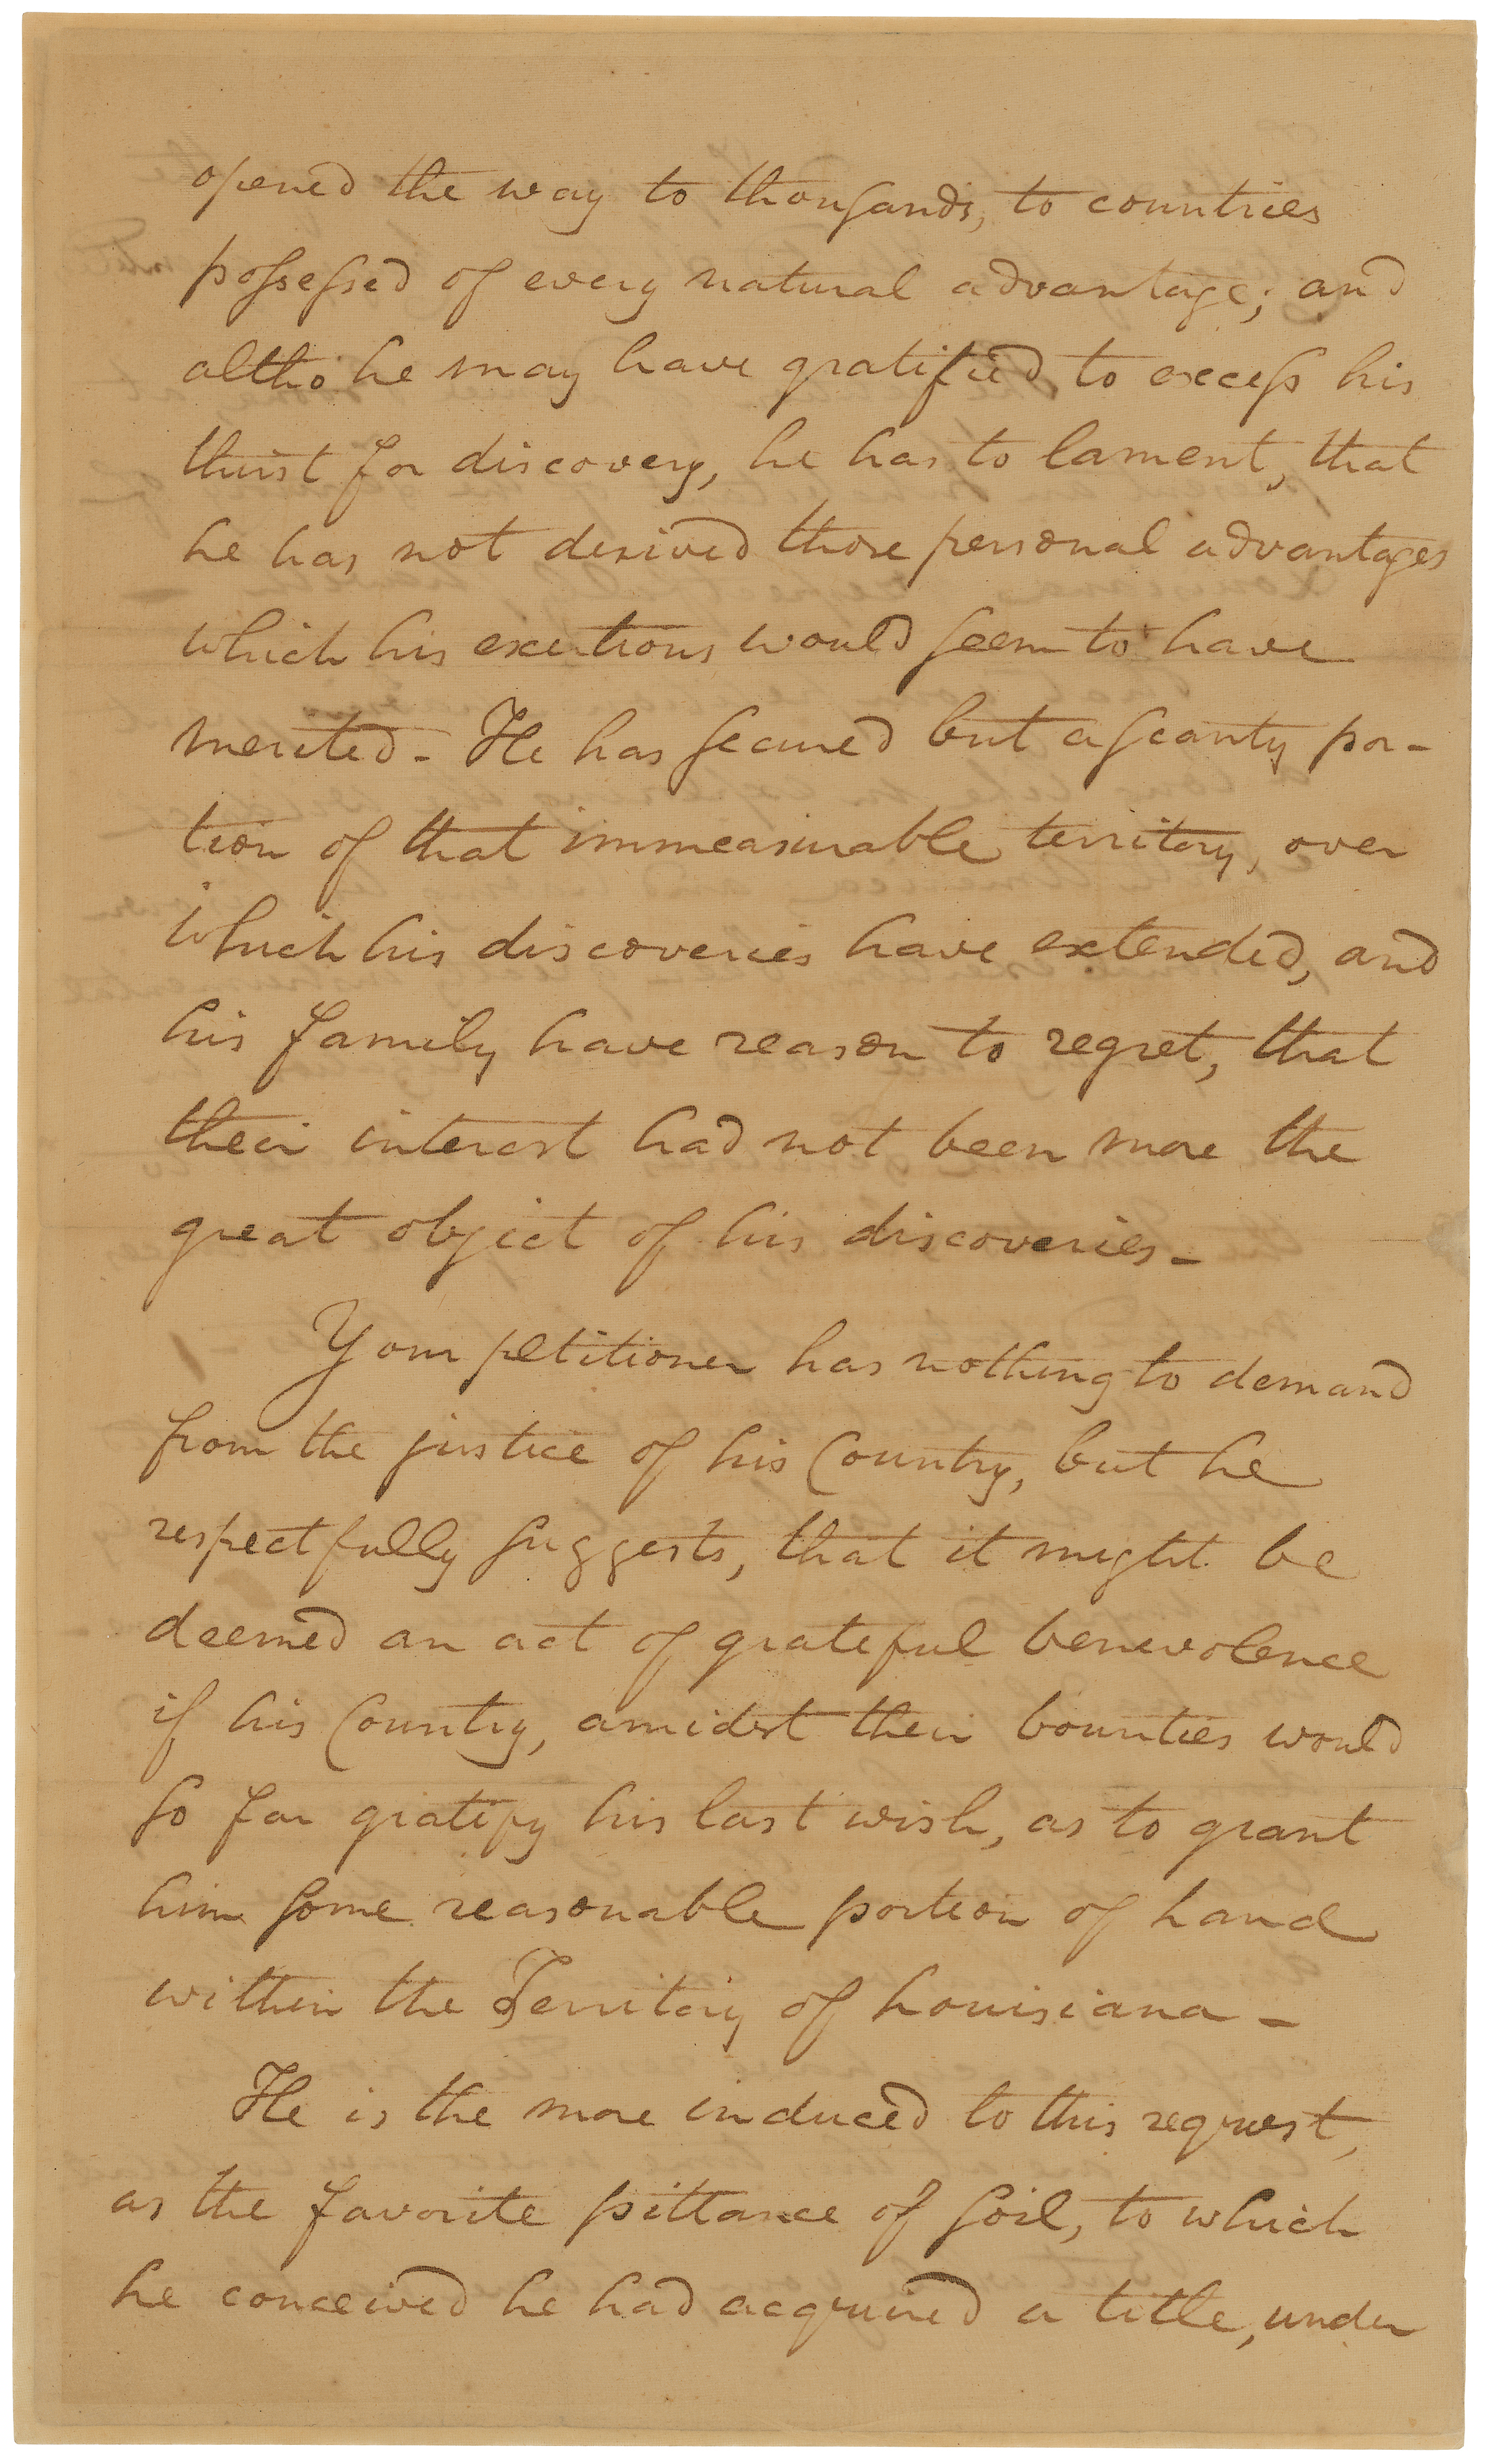 opened the way to thousands, to countries
possessed of every natural advantage; and
altho' he may have gratified, to excess his
thirst for discovery, he has to lament, that
he has not derived those personal advantages
which his exertions would seem to have
merited - He has secured but a scanty por-
tion of that immeasurable territory, over
which his discoveries have extended, and
his family have reason to regret, that
their interest had not been more the
great object of his discoveries -
Your petitioner has nothing to demand
from the justice of his Country, but he
respectfully suggests, that it might be
deemed an act of grateful benevolence
if his Country, amidst their bounties would
so far gratify his last wish, as to grant
him some reasonable portion of Land
within the Territory of Louisiana -
He is the more induced to this request,
as the favorite pittance of soil, to which
he conceived he had acquired a title, under